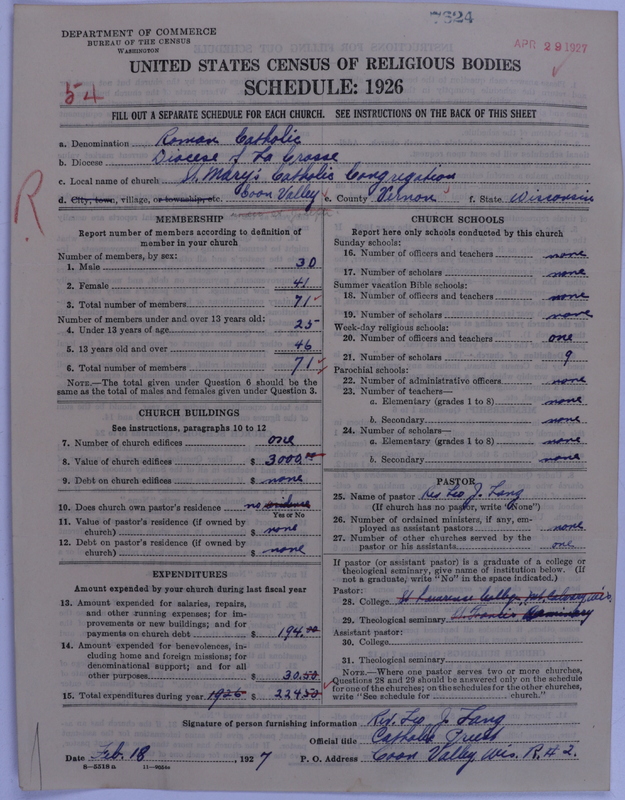 7824
DEPARTMENT OF COMMERCE
BUREAU OF THE CENSUS
WASHINGTON
APR 29 1927
UNITED STATES CENSUS OF RELIGIOUS BODIES
SCHEDULE: 1926
54
FILL OUT A SEPARATE SCHEDULE FOR EACH CHURCH. SEE INSTRUCTIONS ON THE BACK OF THIS SHEET
a. Denomination Roman Catholic
b. Diocese Diocese of La Crosse
c. Local name of church St. Mary's Catholic Congregation
d. City, town, village, or township, etc. Coon Valley e. County Vernon f. State Wisconsin
R
MEMBERSHIP
Report number of members according to definition of
member in your church
Number of members, by sex:
1. Male 30
2. Female 41
3. Total number of members 71
Number of members under and over 13 years old:
4. Under 13 years of age 25
5. 13 years old and over 46
6. Total number of members 71
NOTE.—The total given under Question 6 should be
same as the total of males and females given under Question 3.
CHURCH BUILDINGS
See instructions, paragraphs 10 to 12
7. Number of church edifices one
8. Value of church edifices $ 3000.00
9. Debt on church edifices $ none
10. Does church own pastor's residence no
Yes or No
11. Value of pastor's residence (if owned by
church) $ none
12. Debt on pastor's residence (if owned by
church) $ none
EXPENDITURES
Amount expended by your church during last fiscal year
13. Amount expended for salaries, repairs,
and other running expenses; for im-
provements or new buildings; and for
payments on church debt $ 194.00
14. Amount expended for benevolences, in-
cluding home and foreign missions; for
denominational support; and for all
other purposes $ 30.50
15. Total expenditures during year 1926 $ 224.50
CHURCH SCHOOLS
Report here only schools conducted by this church
Sunday schools:
16. Number of officers and teachers none
17. Number of scholars none
Summer vacation Bible schools:
18. Number of officers and teachers none
19. Number of scholars none
Week-day religious schools:
20. Number of officers and teachers one
21. Number of scholars 9
Parochial schools:
22. Number of administrative officers none
23. Number of teachers—
a. Elementary (grades 1 to 8) none
b. Secondary none
24. Number of scholars—
a. Elementary (grades 1 to 8) none
b. Secondary none
PASTOR
25. Name of pastor Rev. Leo J. Lang
(If church has no pastor, write "None")
26. Number of ordained ministers, if any, em-
ployed as assistant pastors none
27. Number of other churches served by the
pastor or his assistants one
If pastor (or assistant pastor) is a graduate of a college or
theological seminary, give name of institution below. (If
not a graduate, write "No" in the space indicated.)
Pastor:
28. College St Lawrence College, Mt Calvary Wis.
29. Theological seminary St Francis Seminary
Assistant pastor:
30. College
31. Theological seminary
NOTE.—Where one pastor serves two or more churches,
Questions 28 and 29 should be answered only on the schedule
for one of the churches; on the schedules for the other churches,
write "See schedule for church."
Signature of person furnishing information Rev. Leo J. Lang
Official title Catholic Priest
Date Feb. 18, 1927 P. O. Address Coon Valley Wis. R # 2.
8—5518a 11—9054c